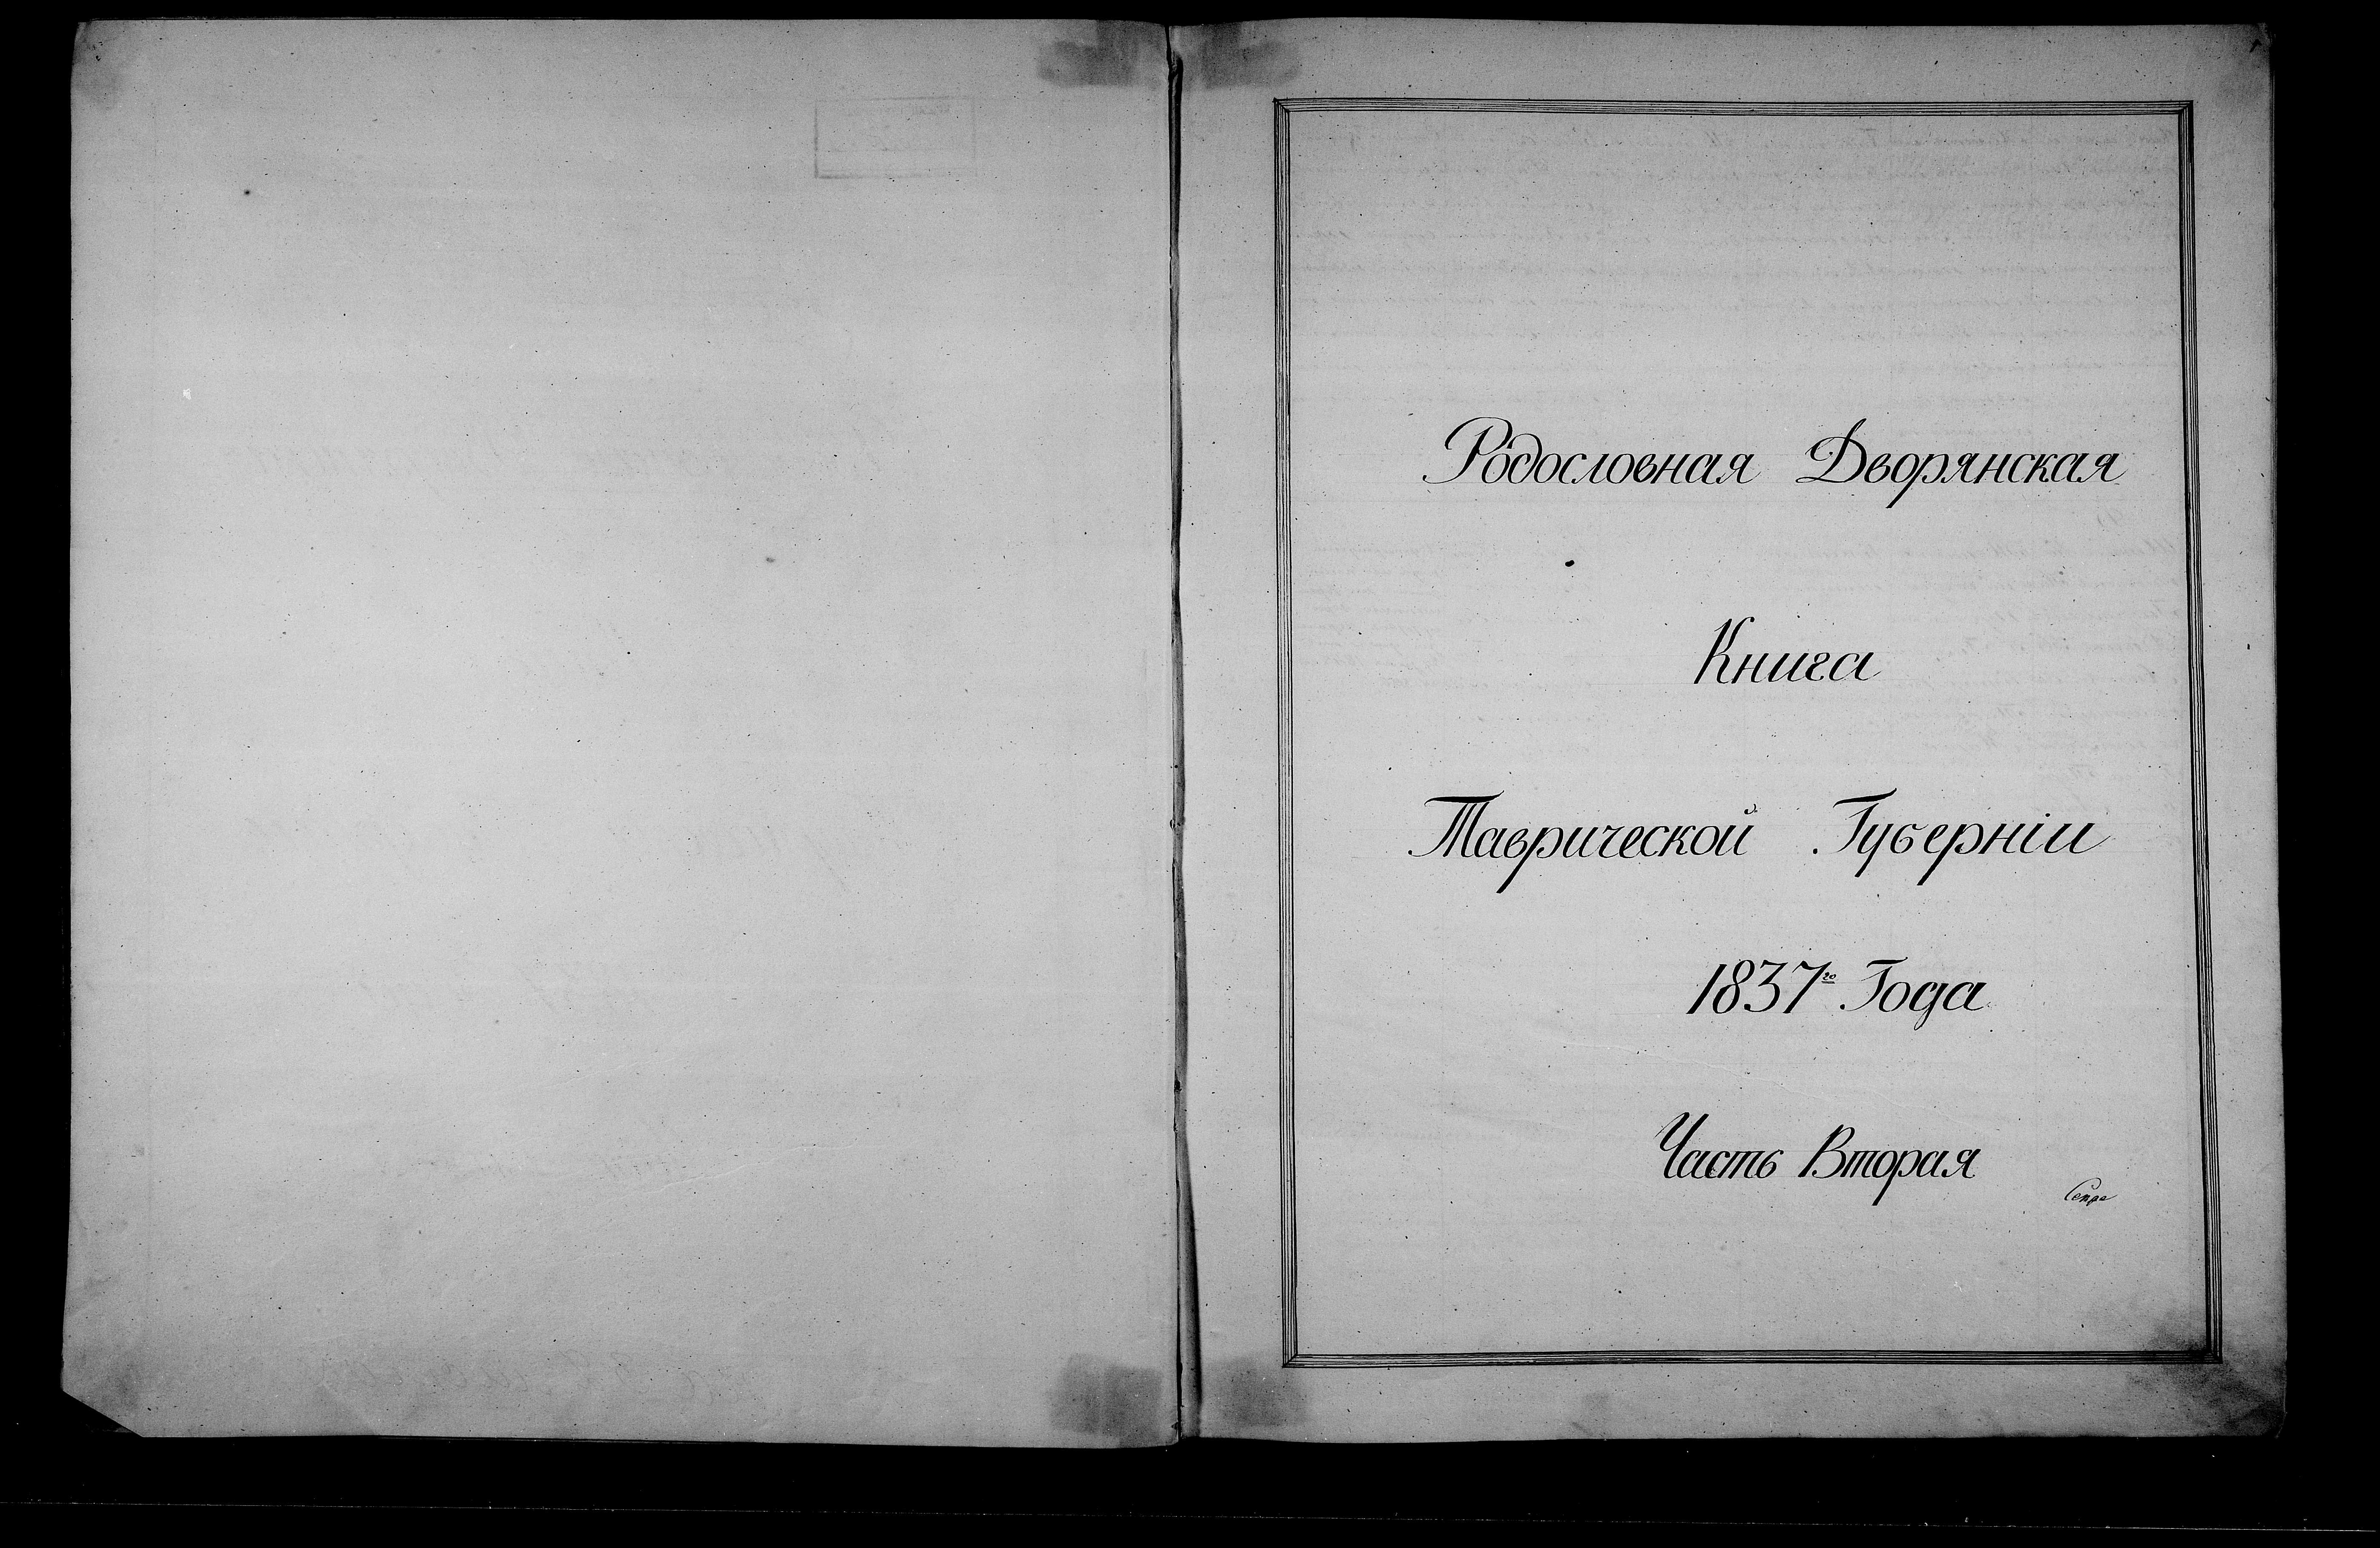 Родословная Дворянская
Книга
Таврической Губерніи
1837го Года
Часть Вторая